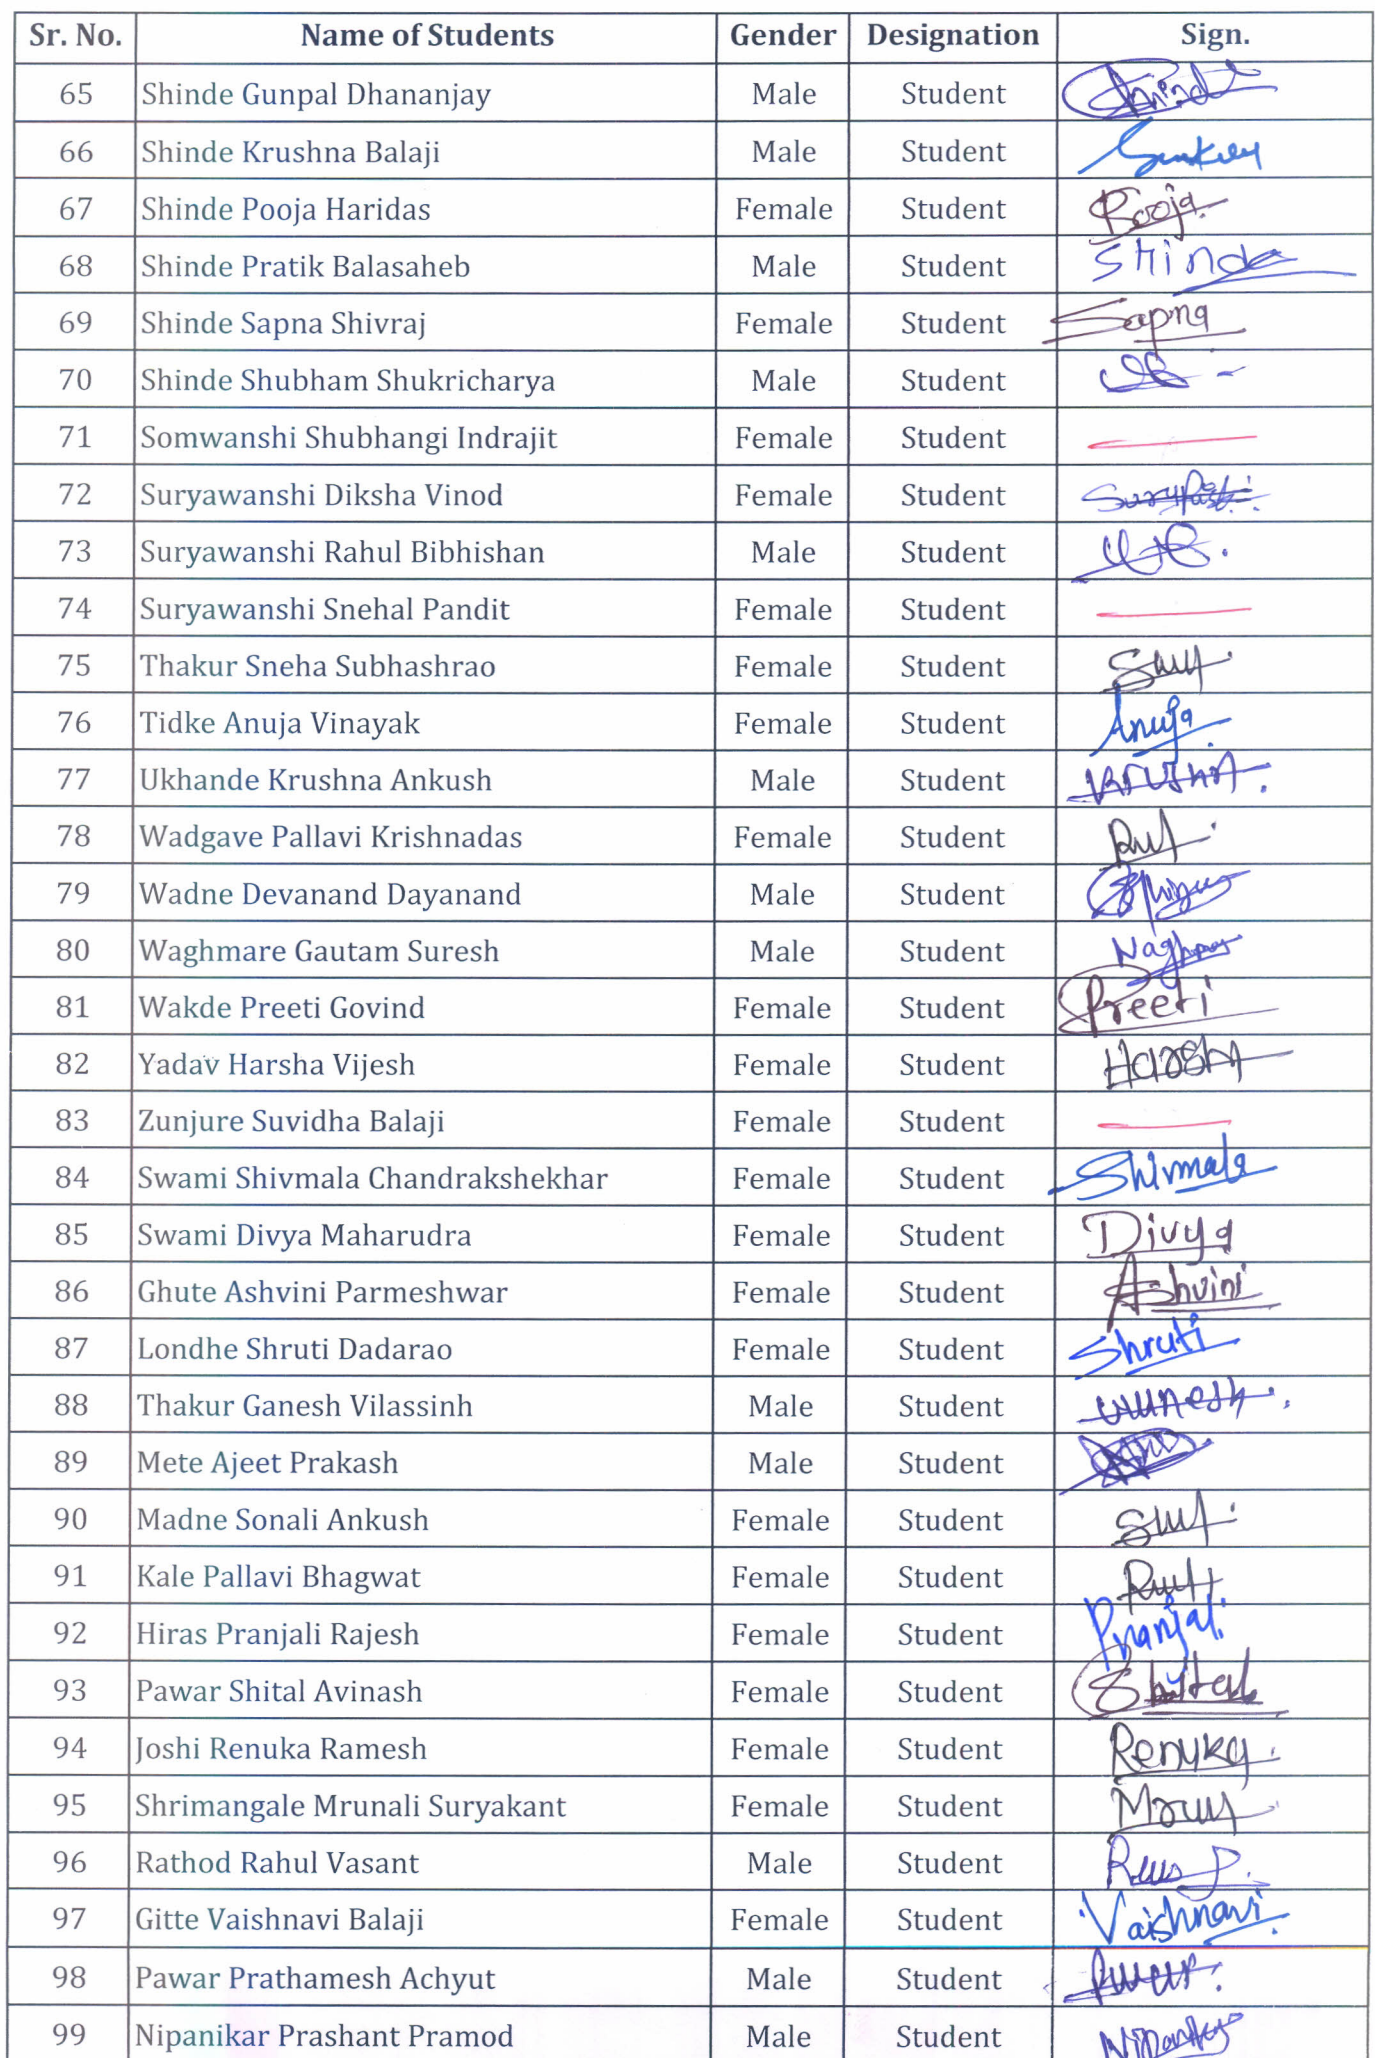 Sr. No. Name of Students Gender Designation Sign.
65 Shinde Gunpal Dhananjay Male Student Shinde
66 Shinde Krushna Balaji Male Student
67 Shinde Pooja Haridas Female Student Pooja
68 Shinde Pratik Balasaheb Male Student Shinde
69 Shinde Sapna Shivraj Female Student Sapna
70 Shinde Shubham Shukricharya Male Student
71 Somwanshi Shubhangi Indrajit Female Student
72 Suryawanshi Diksha Vinod Female Student
73 Suryawanshi Rahul Bibhishan Male Student
74 Suryawanshi Snehal Pandit Female Student
75 Thakur Sneha Subhashrao Female Student
76 Tidke Anuja Vinayak Female Student Anuja
77 Ukhande Krushna Ankush Male Student
78 Wadgave Pallavi Krishnadas Female Student
79 Wadne Devanand Dayanand Male Student
80 Waghmare Gautam Suresh Male Student
81 Wakde Preeti Govind Female Student Preeti
82 Yadav Harsha Vijesh Female Student Harsha
83 Zunjure Suvidha Balaji Female Student
84 Swami Shivmala Chandrakshekhar Female Student Shivmala
85 Swami Divya Maharudra Female Student Divya
86 Ghute Ashvini Parmeshwar Female Student Ashvini
87 Londhe Shruti Dadarao Female Student Shruti
88 Thakur Ganesh Vilassinh Male Student
89 Mete Ajeet Prakash Male Student
90 Madne Sonali Ankush Female Student
91 Kale Pallavi Bhagwat Female Student
92 Hiras Pranjali Rajesh Female Student Pranjali
93 Pawar Shital Avinash Female Student Shital
94 Joshi Renuka Ramesh Female Student Renuka
95 Shrimangale Mrunali Suryakant Female Student
96 Rathod Rahul Vasant Male Student
97 Gitte Vaishnavi Balaji Female Student Vaishnavi
98 Pawar Prathamesh Achyut Male Student
99 Nipanikar Prashant Pramod Male Student